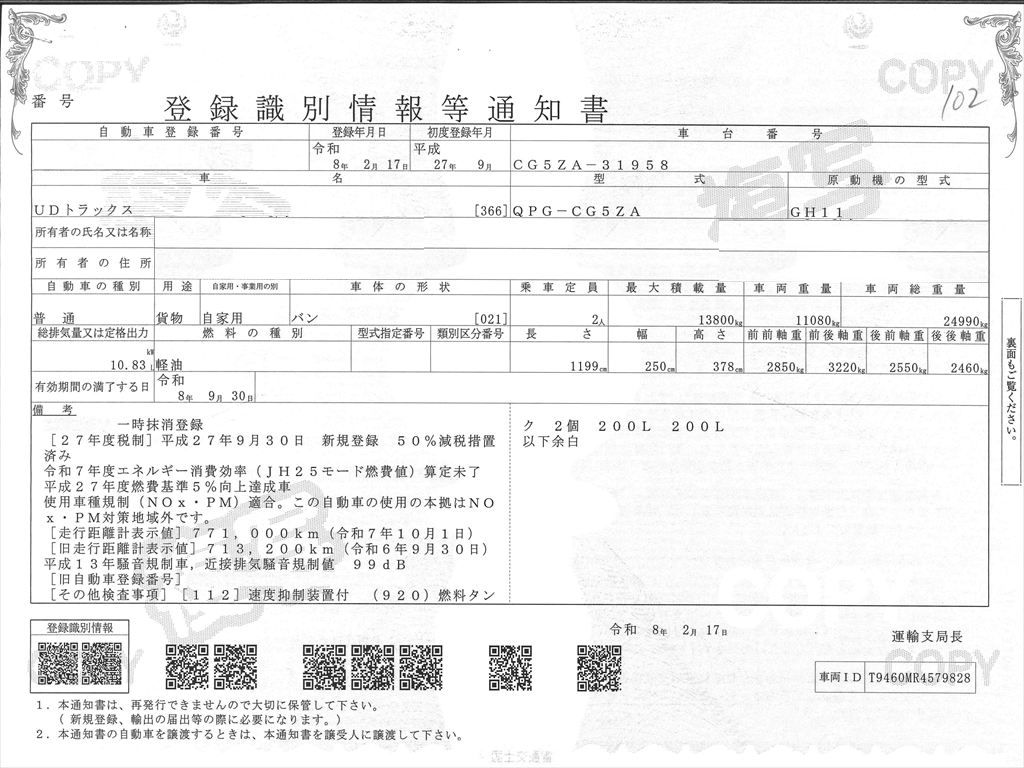 COPY
COPY
102
番号
登録識別情報等通知書
自動車登録番号 登録年月日 初度登録年月 車台番号
令和 8年 2月 17日 平成 27年 9月 CG5ZA-31958
車名 型式 原動機の型式
UDトラックス [366] QPG-CG5ZA GH11
所有者の氏名又は名称
所有者の住所
自動車の種別 用途 自家用・事業用の別 車体の形状 乗車定員 最大積載量 車両重量 車両総重量
普通 貨物 自家用 バン [021] 2人 13800kg 11080kg 24990kg
総排気量又は定格出力 燃料の種別 型式指定番号 類別区分番号 長さ 幅 高さ 前前軸重 前後軸重 後前軸重 後後軸重
kW
10.83 L 軽油 1199cm 250cm 378cm 2850kg 3220kg 2550kg 2460kg
有効期間の満了する日 令和 8年 9月 30日
備考
一時抹消登録
[27年度税制]平成27年9月30日 新規登録 50%減税措置
済み
令和7年度エネルギー消費効率(JH25モード燃費値)算定未了
平成27年度燃費基準5%向上達成車
使用車種規制(NOx・PM)適合。この自動車の使用の本拠はNO
x・PM対策地域外です。
[走行距離計表示値]771,000km(令和7年10月1日)
[旧走行距離計表示値]713,200km(令和6年9月30日)
平成13年騒音規制車,近接排気騒音規制値 99dB
[旧自動車登録番号]
[その他検査事項][112]速度抑制装置付 (920)燃料タン
ク 2個 200L 200L
以下余白
裏面もご覧ください。
複写
複写
COPY
令和 8年 2月 17日
運輸支局長
登録識別情報
COPY
COPY
車両ID T9460MR4579828
1.本通知書は、再発行できませんので大切に保管して下さい。
(新規登録、輸出の届出等の際に必要になります。)
2.本通知書の自動車を譲渡するときは、本通知書を譲受人に譲渡して下さい。